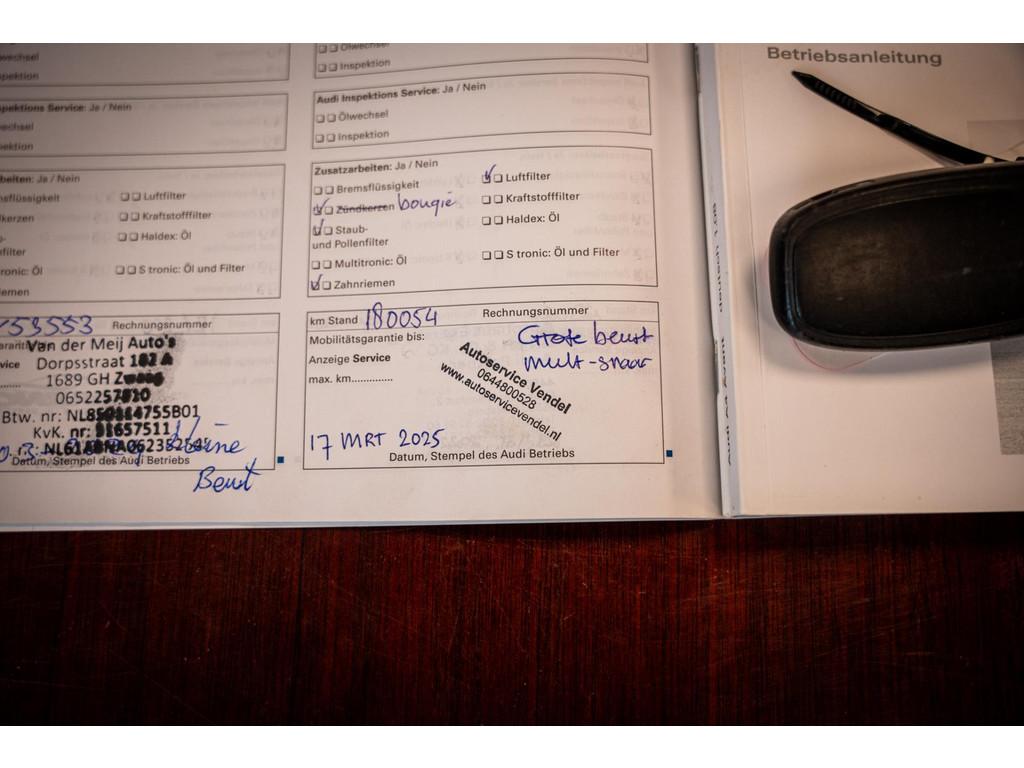 wechsel
pektion
pektions Service: Ja / Nein
wechsel
pektion
beiten: Ja / Nein
sflüssigkeit
☐ ☐ Luftfilter
kerzen
☐ ☐ Kraftstofffilter
☐ ☐ Haldex: Öl
filter
ronic: Öl
☐ ☐ S tronic: Öl und Filter
iemen
53553 Rechnungsnummer
Van der Meij Auto's
Dorpsstraat
1689 GH
Btw. nr:
KvK. nr:
Datum, Stempel des Audi Betriebs
Beurt
☐ ☐ Ölwechsel
☐ ☐ Inspektion
Audi Inspektions Service: Ja / Nein
☐ ☐ Ölwechsel
☐ ☐ Inspektion
Zusatzarbeiten: Ja / Nein
☐ ☐ Bremsflüssigkeit
☑ ☐ Zündkerzen bougie
☑ ☐ Staub-
und Pollenfilter
☐ ☐ Multitronic: Öl
☑ ☐ Zahnriemen
☑ ☐ Luftfilter
☐ ☐ Kraftstofffilter
☐ ☐ Haldex: Öl
☐ ☐ S tronic: Öl und Filter
km Stand 180054 Rechnungsnummer
Mobilitätsgarantie bis:
Grote beurt
Anzeige Service
mult-snaar
max. km..............
Autoservice Vendel
0644800528
www.autoservicevendel.nl
17 MRT 2025
Datum, Stempel des Audi Betriebs
Betriebsanleitung